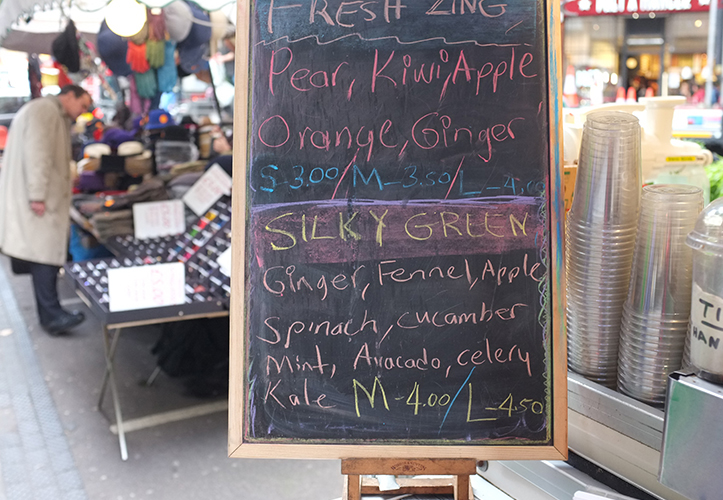 FRESH ZING
Pear, Kiwi, Apple
Orange, Ginger
S-3.00/M-3.50/L-4.00
SILKY GREEN
Ginger, Fennel, Apple
Spinach, cucamber
Mint, Avacado, celery
Kale M-4.00/L-4.50
TI
HAN